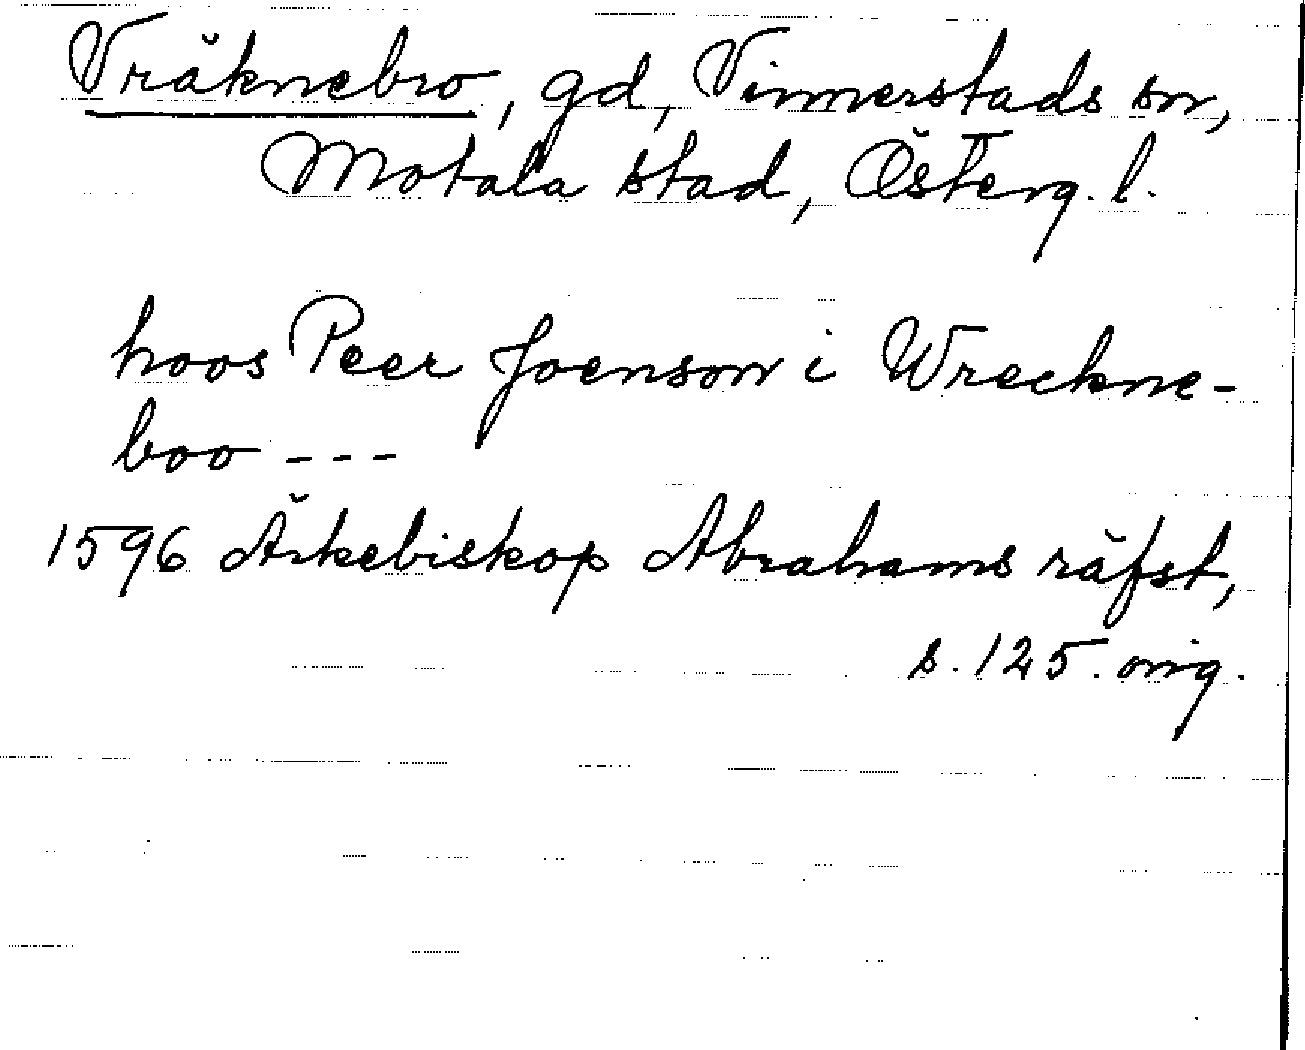 Vräknebro, gd, Vinnerstads sn,
Motala stad, Österg. l.
hoos Peer Joenson i Wreckne-
boo ---
1596 Ärkebiskop Abrahams räfst,
s. 125. orig.